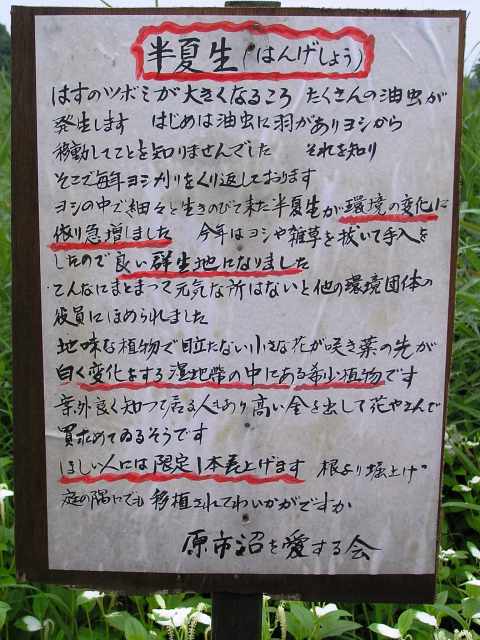 半夏生(はんげしょう)
はすのツボミが大きくなるころ たくさんの油虫が
発生します はじめは油虫に羽がありヨシから
移動してことを知りませんでした それを知り
そこで毎年ヨシ刈りをくり返しております
ヨシの中で細々と生きのびて来た半夏生が環境の変化に
依り急増しました 今年はヨシや雑草を抜いて手入を
したので良い群生地になりました
こんなにまとまって元気な所はないと他の環境団体の
役員にほめられました
地味な植物で目立たない小さな花が咲き葉の先が
白く変化をする湿地帯の中にある希少植物です
案外良く知って居る人もあり高い金を出して花やさんで
買求めてゐるそうです
ほしい人には限定1本差上げます 根より堀上げ
庭の隅にでも移植されてわいかがですか
原市沼を愛する会